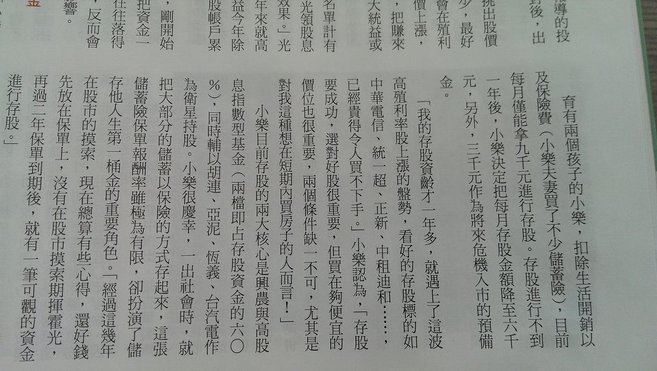 導的投
對後，出
挑出股價
少，最好
會在殖利
價上漲，
，把賺來
大統益或
名單計有
光領股息
效果。」光
年來就高
益今年除
股帳戶累
，剛開始
把資金一
往往落得
，反而會
響。
金
育有兩個孩子的小樂，扣除生活開銷以
及保險費（小樂夫妻買了不少儲蓄險），目前
每月僅能拿九千元進行存股。存股進行不到
一年後，小樂決定把每月存股金額降至六千
元，另外，三千元作為將來危機入市的預備
金。
「我的存股資齡才一年多，就遇上了這波
高殖利率股上漲的盤勢，看好的存股標的如
中華電信、統一超、正新、中租迪和……，
已經貴得令人買不下手。」小樂認為，「存股
要成功，選對好股很重要，但買在夠便宜的
價位也很重要，兩個條件缺一不可，尤其是
對我這種想在短期內買房子的人而言！」
小樂目前存股的兩大核心是興農與高股
息指數型基金（兩檔即占存股資金的六○
%），同時輔以胡連、亞泥、恆義、台汽電作
為衛星持股。小樂很慶幸，一出社會時，就
把大部分的儲蓄以保險的方式存起來，這張
儲蓄險保單報酬率雖極為有限，卻扮演了儲
存他人生第一桶金的重要角色。「經過這幾年
在股市的摸索，現在總算有些心得，還好錢
先放在保單上，沒有在股市摸索期揮霍光，
再過二年保單到期後，就有一筆可觀的資金
進行存股。」